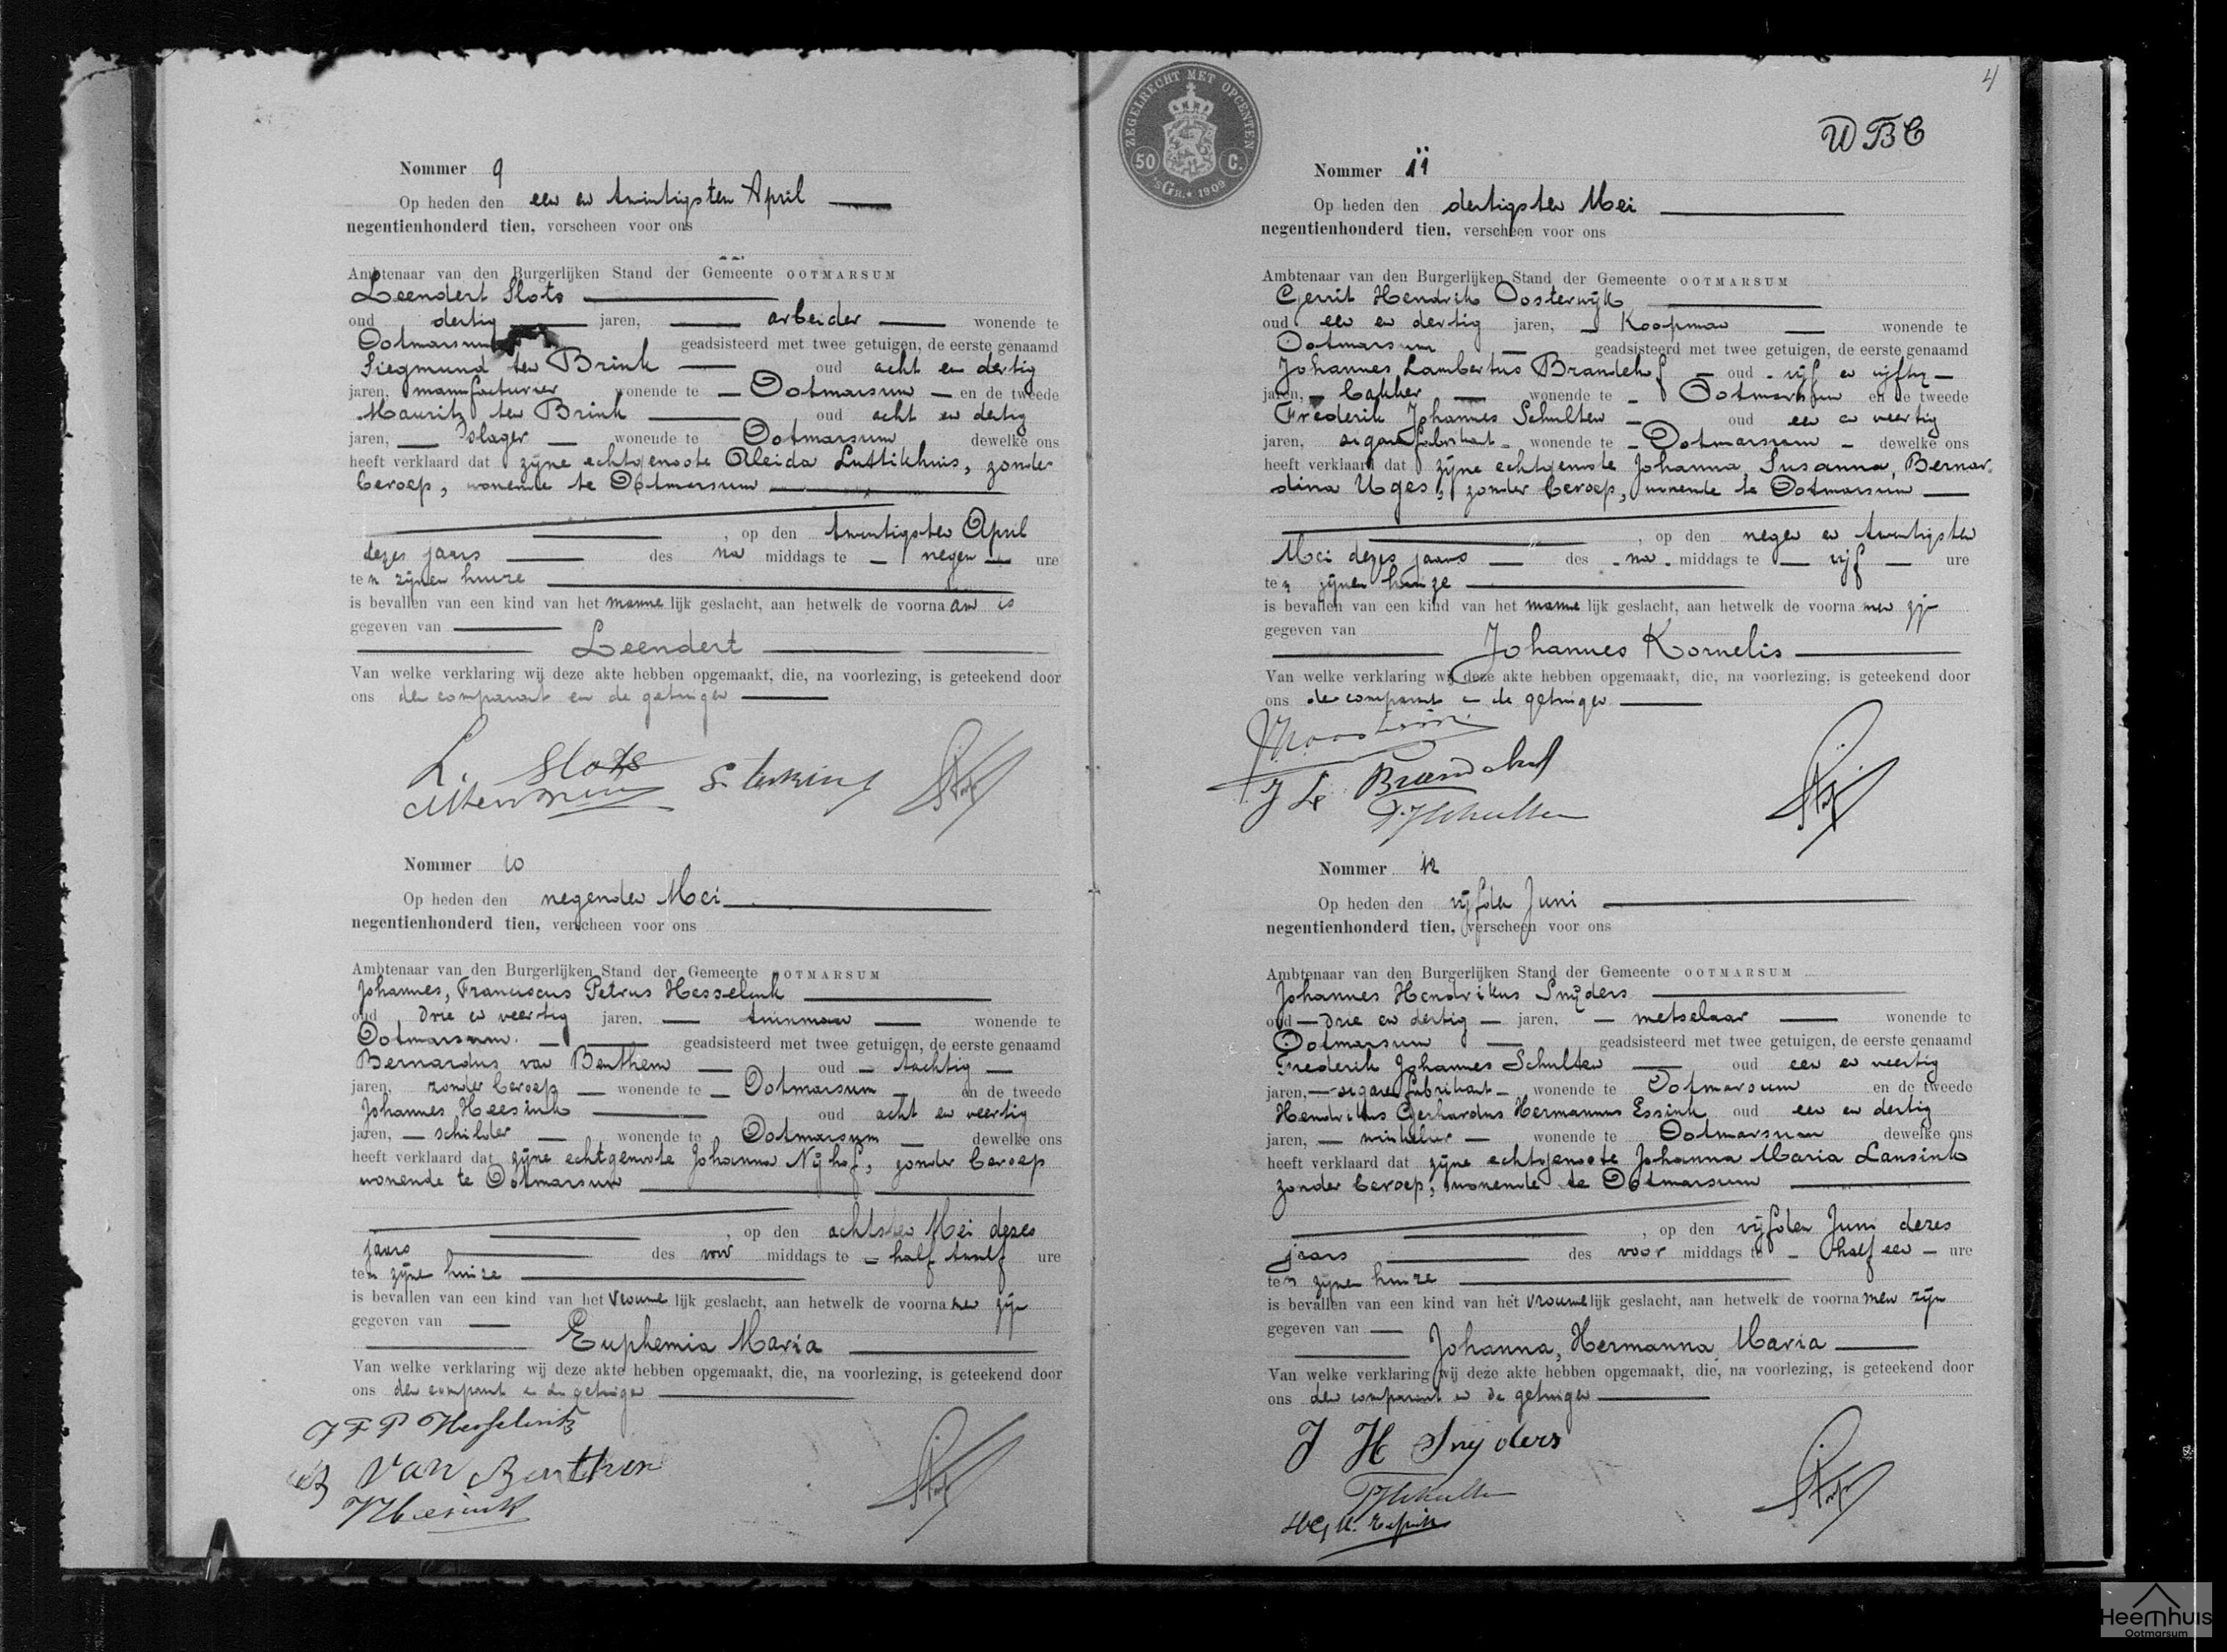 Nommer 9
Op heden den een en twintigsten April
negentienhonderd tien, verscheen voor ons
Ambtenaar van den Burgerlijken Stand der Gemeente OOTMARSUM
Leendert Slots
oud dertig jaren, arbeider wonende te
Ootmarsum geadsisteerd met twee getuigen, de eerste genaamd
Siegmund ten Brink oud acht en dertig
jaren, manufacturier wonende te Ootmarsum en de tweede
Mauritz ten Brink oud acht en dertig
jaren, slager wonende te Ootmarsum dewelke ons
heeft verklaard dat zijne echtgenoote Aleida Luttikhuis, zonder
beroep, wonende te Ootmarsum
, op den twintigsten April
dezes jaars des na middags te negen ure
ten zijnen huize
is bevallen van een kind van het mannelijk geslacht, aan hetwelk de voornaam is
gegeven van
Leendert
Van welke verklaring wij deze akte hebben opgemaakt, die, na voorlezing, is geteekend door
ons den comparant en de getuigen
L. Slots
Nommer 10
Op heden den negenden Mei
negentienhonderd tien, verscheen voor ons
Ambtenaar van den Burgerlijken Stand der Gemeente OOTMARSUM
Johannes, Franciscus Petrus Hesselink
oud drie en veertig jaren, tuinman wonende te
Ootmarsum. geadsisteerd met twee getuigen, de eerste genaamd
Bernardus van Benthem oud tachtig
jaren, zonder beroep wonende te Ootmarsum en de tweede
Johannes Heesink oud acht en veertig
jaren, schilder wonende te Ootmarsum dewelke ons
heeft verklaard dat zijne echtgenoote Johanna Nijhof, zonder beroep
wonende te Ootmarsum
, op den achtsten Mei dezes
jaars des voor middags te half twelf ure
ten zijne huize
is bevallen van een kind van het vrouwelijk geslacht, aan hetwelk de voornamen zijn
gegeven van
Euphemia Maria
Van welke verklaring wij deze akte hebben opgemaakt, die, na voorlezing, is geteekend door
ons den comparant en de getuigen
J F P Hesselink
van Benthem
JHeesink
ZEGELRECHT MET OPCENTEN
50 C.
'sGR. 1909
4
WBC
Nommer 11
Op heden den dertigsten Mei
negentienhonderd tien, verscheen voor ons
Ambtenaar van den Burgerlijken Stand der Gemeente OOTMARSUM
Gerrit Hendrik Oosterwijk
oud een en dertig jaren, Koopman wonende te
Ootmarsum geadsisteerd met twee getuigen, de eerste genaamd
Johannes Lambertus Brandehof oud vijf en vijftig
jaren, bakker wonende te Ootmarsum en de tweede
Frederik Johannes Schulten oud een en veertig
jaren, sigarenfabrikant wonende te Ootmarsum dewelke ons
heeft verklaard dat zijne echtgenoote Johanna, Susanna, Bernar
dina Uges, zonder beroep, wonende te Ootmarsum
, op den negen en twintigsten
Mei dezes jaars des na middags te vijf ure
ten zijnen huize
is bevallen van een kind van het mannelijk geslacht, aan hetwelk de voornamen zijn
gegeven van
Johannes Kornelis
Van welke verklaring wij deze akte hebben opgemaakt, die, na voorlezing, is geteekend door
ons den comparant en de getuigen
J L Brandehof
F.J Schulten
Nommer 12
Op heden den vijfden Juni
negentienhonderd tien, verscheen voor ons
Ambtenaar van den Burgerlijken Stand der Gemeente OOTMARSUM
Johannes Hendrikus Snijders
oud drie en dertig jaren, metselaar wonende te
Ootmarsum geadsisteerd met twee getuigen, de eerste genaamd
Frederik Johannes Schulten oud een en veertig
jaren, sigarenfabrikant wonende te Ootmarsum en de tweede
Hendrikus Gerhardus Hermannus Essink oud een en dertig
jaren, winkelier wonende te Ootmarsum dewelke ons
heeft verklaard dat zijne echtgenoote Johanna Maria Lansink
zonder beroep, wonende te Ootmarsum
, op den vijfden Juni dezes
jaars des voor middags te half een ure
ten zijnen huize
is bevallen van een kind van het vrouwelijk geslacht, aan hetwelk de voornamen zijn
gegeven van
Johanna, Hermanna, Maria
Van welke verklaring wij deze akte hebben opgemaakt, die, na voorlezing, is geteekend door
ons den comparant en de getuigen
J H Snijders
FJSchulten
HG H. Essink
Heemhuis
Ootmarsum